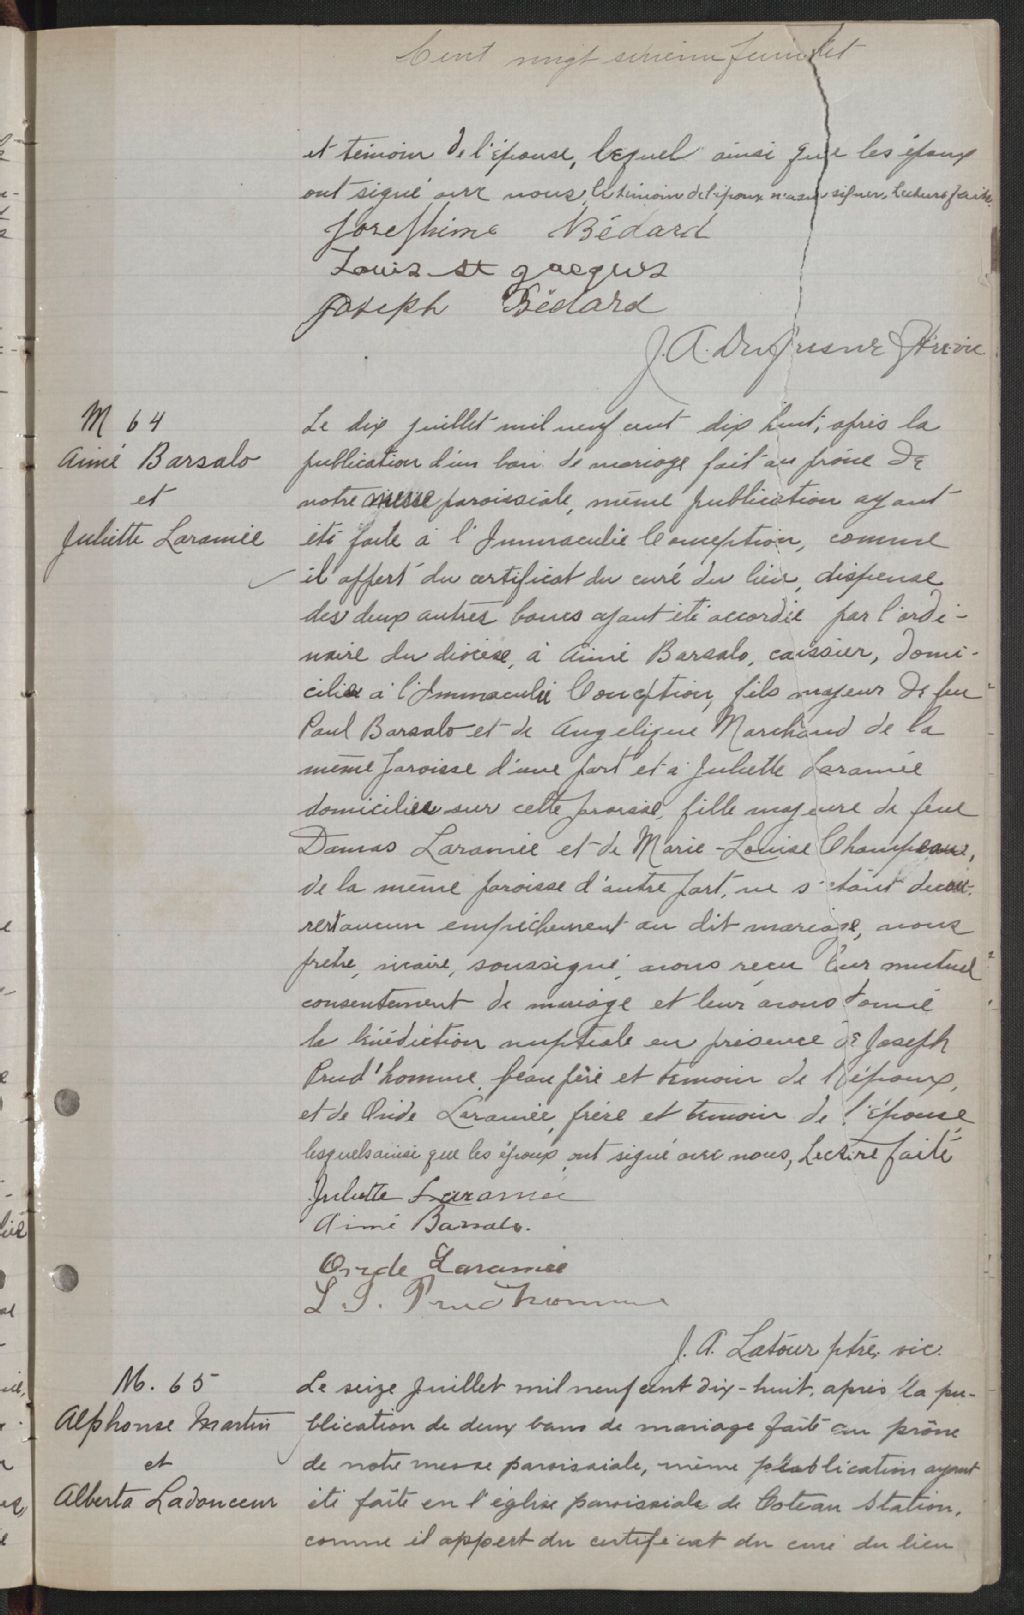 Cent vingt sixième feuillet
et témoin de l'épouse, lequel ainsi que les époux
ont signé avec nous, le témoin de l'époux n'a su signer. Lecture faite.
Josephine Bédard
Louis st jacques
Joseph Bédard
J. A. Dufresne Ptre vic
M 64
Aimé Barsalo
et
Juliette Laramée
Le dix juillet mil neuf cent dix huit, après la
publication d'un ban de mariage fait au prône de
notre messe paroissiale, même publication ayant
été faite à l'Immaculée Conception, comme
il appert du certificat du curé du lieu, dispense
des deux autres bancs ayant été accordée par l'ordi-
naire du diocèse, à Aimé Barsalo, caissier, domi-
cilié à l'Immaculée Conception, fils majeur de feu
Paul Barsalo et de Angelique Marchand de la
même paroisse d'une part et à Juliette Laramée
domiciliée sur cette paroisse, fille majeure de feue
Damas Laramée et de Marie-Louise Champeau,
de la même paroisse d'autre part, ne s'étant décou-
vert aucun empêchement au dit mariage, nous
prêtre, vicaire, soussigné, avons reçu leur mutuel
consentement de mariage et leur avons donné
la bénédiction nuptiale en présence de Joseph
Prud'homme, beau frère et témoin de l'époux,
et de Ovide Laramée, frère et témoin de l'épouse,
lesquels ainsi que les époux ont signé avec nous, Lecture faite
Juliette Laramée
Aimé Barsalo.
Ovide Laramée
Prud'homme
J. A. Latour ptre. vic.
M. 65
Alphonse Martin
et
Alberta Ladouceur
Le seize Juillet mil neuf cent dix-huit, après la pu-
blication de deux bans de mariage faite au prône
de notre messe paroissiale, même publication ayant
été faite en l'église paroissiale de Coteau Station,
comme il appert du certificat du curé du lieu